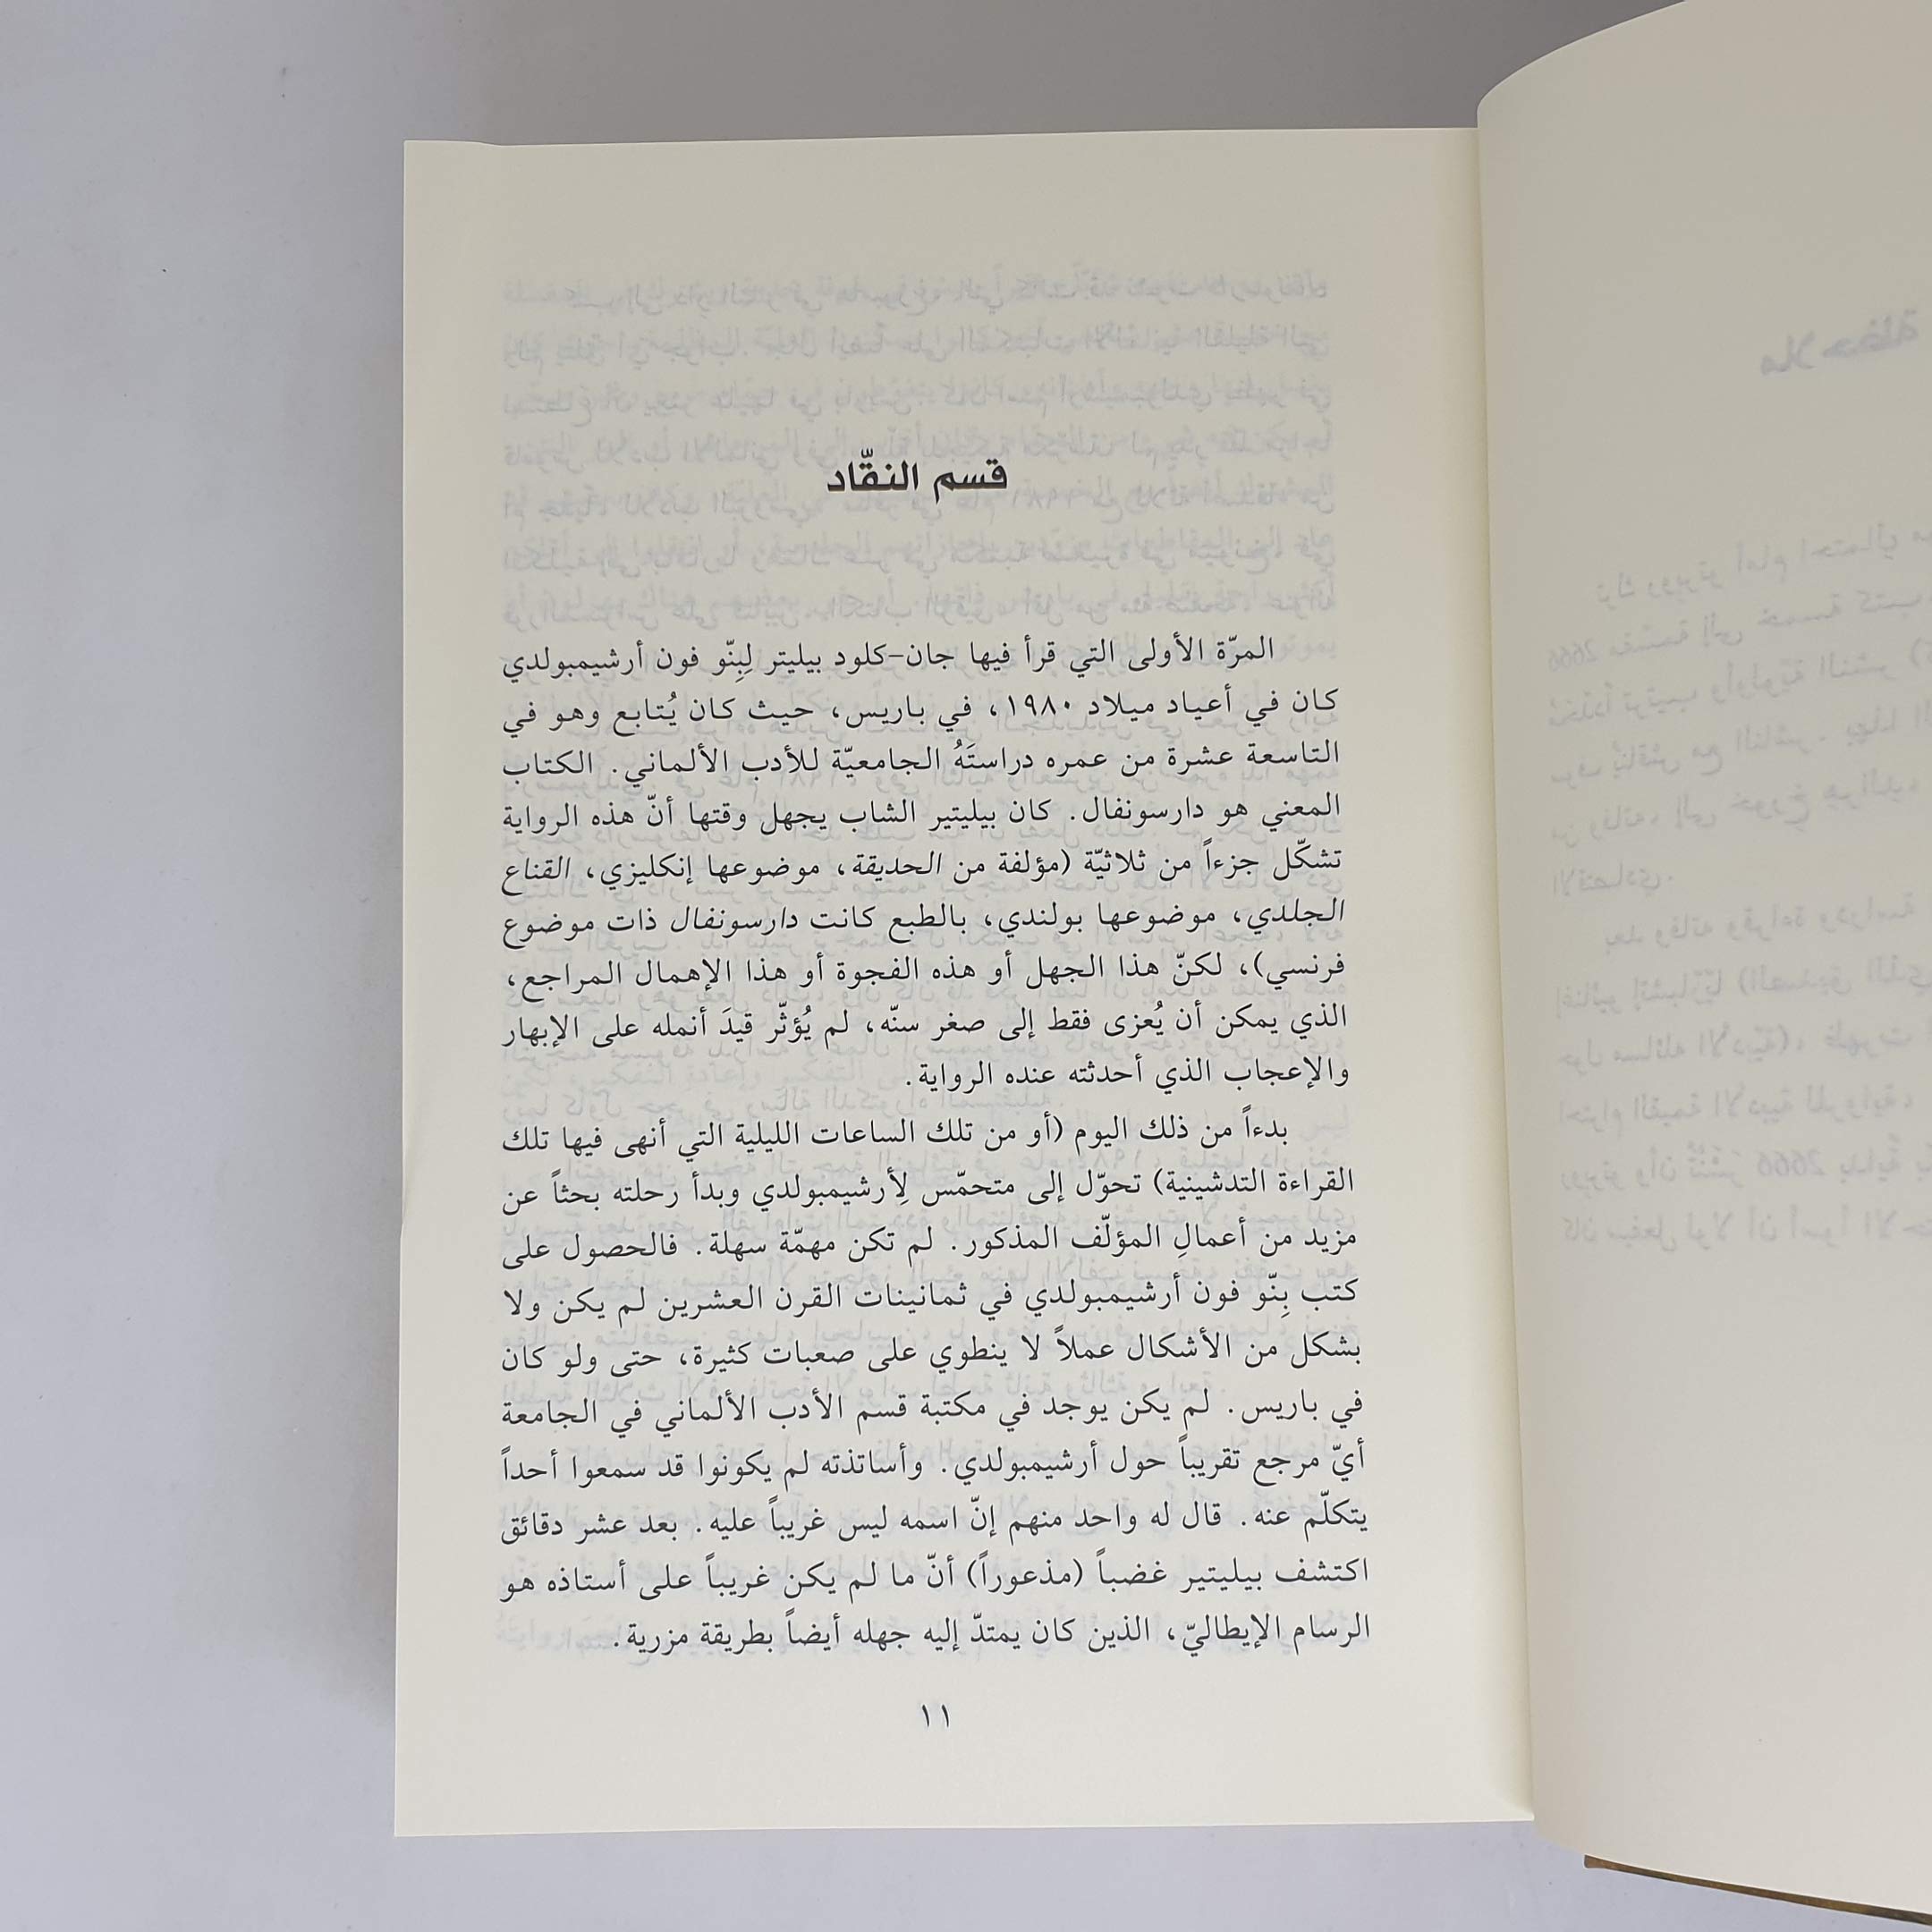 قسم النقّاد
المرّة الأولى التي قرأ فيها جان-كلود بيليتر لِبِنّو فون أرشيمبولدي
كان في أعياد ميلاد ١٩٨٠، في باريس، حيث كان يُتابع وهو في
التاسعة عشرة من عمره دراستَهُ الجامعيّة للأدب الألماني. الكتاب
المعني هو دارسونفال. كان بيليتير الشاب يجهل وقتها أنّ هذه الرواية
تشكّل جزءاً من ثلاثيّة (مؤلفة من الحديقة، موضوعها إنكليزي، القناع
الجلدي، موضوعها بولندي، بالطبع كانت دارسونفال ذات موضوع
فرنسي)، لكنّ هذا الجهل أو هذه الفجوة أو هذا الإهمال المراجع،
الذي يمكن أن يُعزى فقط إلى صغر سنّه، لم يُؤثّر قيدَ أنمله على الإبهار
والإعجاب الذي أحدثته عنده الرواية.
بدءاً من ذلك اليوم (أو من تلك الساعات الليلية التي أنهى فيها تلك
القراءة التدشينية) تحوّل إلى متحمّس لِأرشيمبولدي وبدأ رحلته بحثاً عن
مزيد من أعمالِ المؤلّف المذكور. لم تكن مهمّة سهلة. فالحصول على
كتب بِنّو فون أرشيمبولدي في ثمانينات القرن العشرين لم يكن ولا
بشكل من الأشكال عملاً لا ينطوي على صعبات كثيرة، حتى ولو كان
في باريس. لم يكن يوجد في مكتبة قسم الأدب الألماني في الجامعة
أيّ مرجع تقريباً حول أرشيمبولدي. وأساتذته لم يكونوا قد سمعوا أحداً
يتكلّم عنه. قال له واحد منهم إنّ اسمه ليس غريباً عليه. بعد عشر دقائق
اكتشف بيليتير غضباً (مذعوراً) أنّ ما لم يكن غريباً على أستاذه هو
الرسام الإيطاليّ، الذين كان يمتدّ إليه جهله أيضاً بطريقة مزرية.
١١